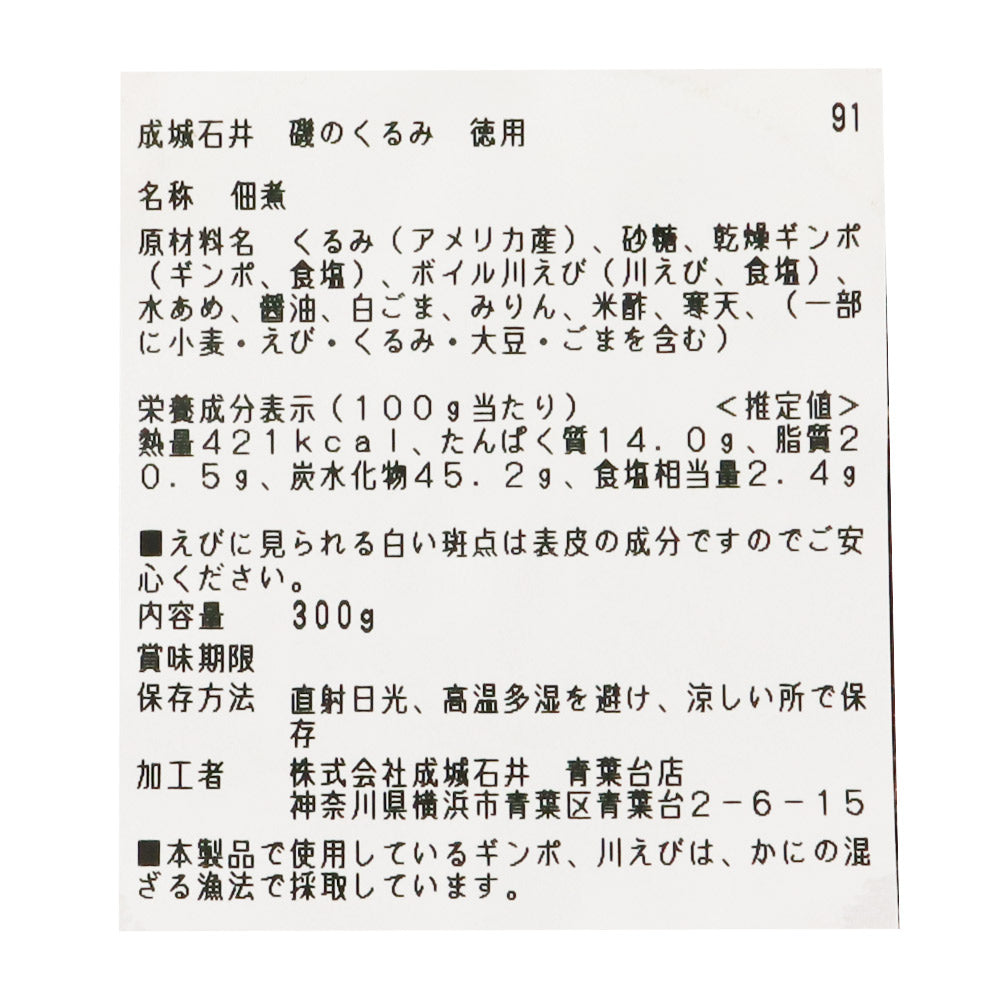 91
成城石井　磯のくるみ　徳用
名称　佃煮
原材料名　くるみ（アメリカ産）、砂糖、乾燥ギンポ
（ギンポ、食塩）、ボイル川えび（川えび、食塩）、
水あめ、醤油、白ごま、みりん、米酢、寒天、（一部
に小麦・えび・くるみ・大豆・ごまを含む）
栄養成分表示（１００ｇ当たり）　＜推定値＞
熱量４２１ｋｃａｌ、たんぱく質１４．０ｇ、脂質２
０．５ｇ、炭水化物４５．２ｇ、食塩相当量２．４ｇ
■えびに見られる白い斑点は表皮の成分ですのでご安
心ください。
内容量　300g
賞味期限
保存方法　直射日光、高温多湿を避け、涼しい所で保
存
加工者　株式会社成城石井　青葉台店
神奈川県横浜市青葉区青葉台２－６－１５
■本製品で使用しているギンポ、川えびは、かにの混
ざる漁法で採取しています。